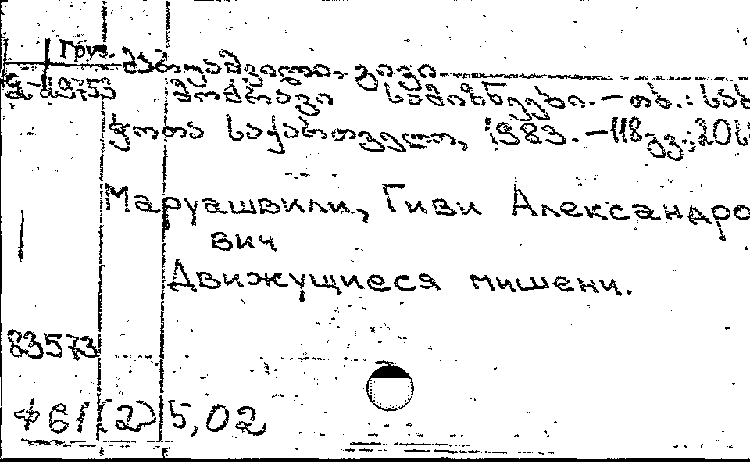 Груз. მარუაშვილი, გივი
მოძრავი სამიზნეები. — თბ.: საბ
ჭოთა საქართველო, 1983. — 118 გვ;
Маруашвили, Гиви Александро
вич
Движущиеся мишени.
83573